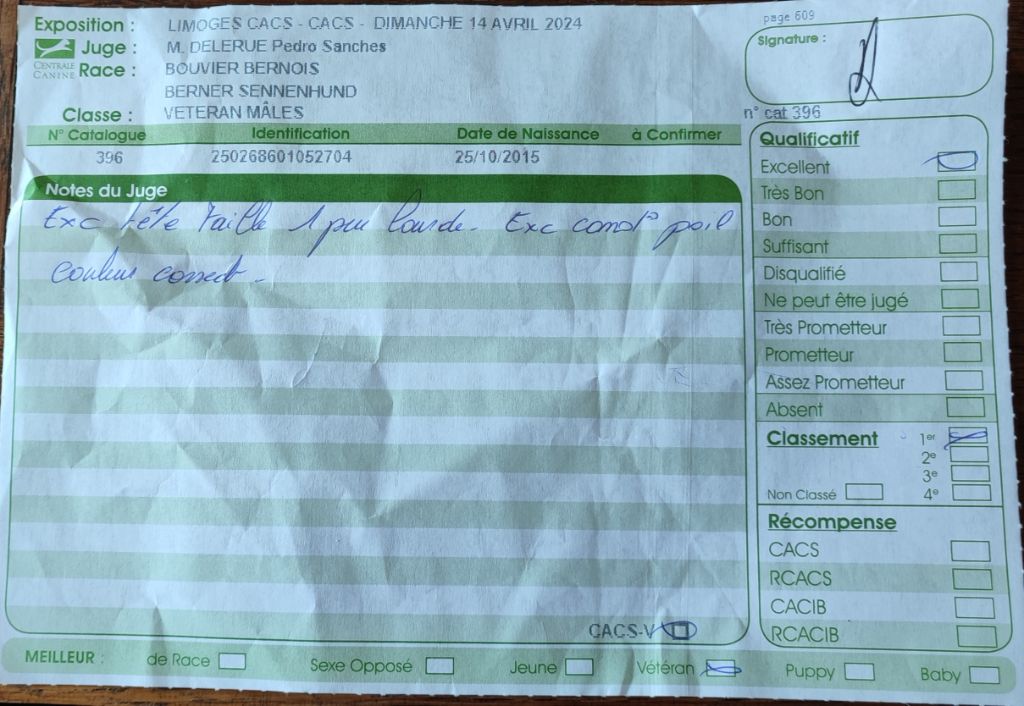 Exposition : LIMOGES CACS - CACS - DIMANCHE 14 AVRIL 2024
page 609
CENTRALE CANINE
Juge : M. DELERUE Pedro Sanches
Signature :
Race : BOUVIER BERNOIS
BERNER SENNENHUND
Classe : VETERAN MÂLES
n° cat 396
N° Catalogue Identification Date de Naissance à Confirmer
396 250268601052704 25/10/2015
Notes du Juge
Exc tête Taille 1 peu lourde. Exc const° poil
couleur correct.
CACS-V
Qualificatif
Excellent
Très Bon
Bon
Suffisant
Disqualifié
Ne peut être jugé
Très Prometteur
Prometteur
Assez Prometteur
Absent
Classement 1er
2e
3e
Non Classé 4e
Récompense
CACS
RCACS
CACIB
RCACIB
MEILLEUR : de Race Sexe Opposé Jeune Vétéran Puppy Baby